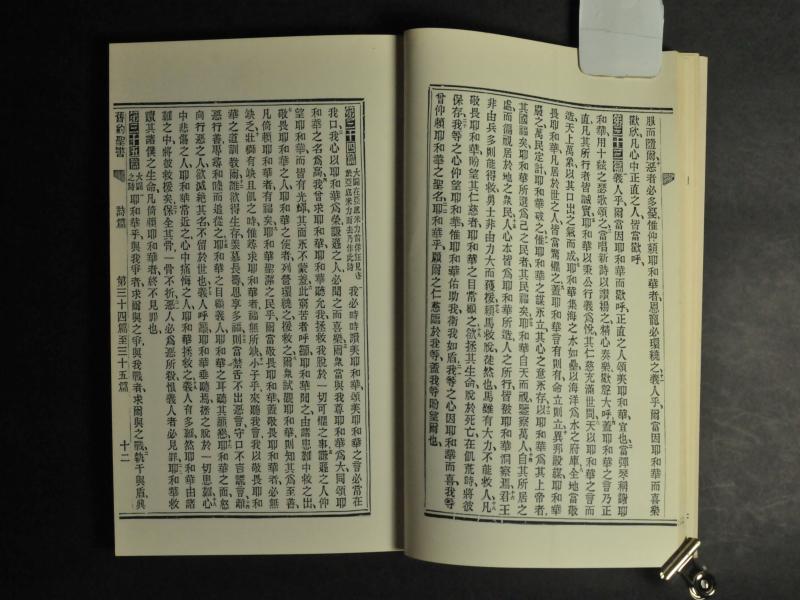 服而隨爾惡者必多憂惟仰賴耶和華者恩寵必環繞之義人乎爾當因耶和華而喜樂
歡欣凡心中正直之人皆當歡呼
第三十三篇義人乎爾當因耶和華而歡呼正直之人頌美耶和華宜也當彈琴稱謝耶
和華用十絃之瑟歌頌之當唱新詩以讚揚之精心奏樂歡聲大呼蓋耶和華之言乃正
直凡其所行者皆誠實耶和華以秉公行義為悅其仁慈充滿世間天以耶和華之言而
造天上萬象以其口出之氣而成耶和華集海之水如壘以海洋為水之府庫全地當敬
畏耶和華凡居於世之人皆當驚懼之蓋耶和華言有則有命立則立異邦設謀耶和華
廢之萬民定計耶和華破之惟耶和華之謀永立其心之意永存以耶和華為其上帝者
其國福矣耶和華所選為己之民者其民福矣耶和華自天而視鑒察萬人自其所居之
處而徧視居於地之眾民人心本皆為耶和華所造人之所行皆被耶和華洞察焉君王
非由兵多則能得救勇士非由力大而獲援賴馬救脫徒然也馬雖有大力不能救人凡
敬畏耶和華盼望其仁慈者耶和華之目常顧之欲拯其生命脫於死亡在飢荒時將彼
保存我等之心仰望耶和華惟耶和華佑助我衛我如盾我等之心因耶和華而喜我等
曾仰賴耶和華之聖名耶和華乎願爾之仁慈臨於我等蓋我等盼望爾也
第三十四篇大闢在亞庇米力前佯狂見逐於亞庇米力而去乃作此詩我必時時讚美耶和華頌美耶和華之言必常在
我口我心以耶和華為榮謙遜之人必聞之而喜樂爾眾當與我尊耶和華為大同頌耶
和華之名為高我曾求耶和華耶和華聽允我拯救我脫於一切可懼之事謙遜之人仰
望耶和華皆有光輝其面永不蒙羞此窮苦者呼籲耶和華垂聞之由諸患難中救之出
敬畏耶和華之人耶和華之使者列營環繞之援救之爾眾試觀耶和華則知其為至善
凡倚賴耶和華者有福矣耶和華聖潔之民乎爾當敬畏耶和華蓋敬畏耶和華者必無
缺乏壯獅有缺且飢之時惟尋求耶和華者福無所缺小子乎來聽我言我以敬畏耶和
華之道訓教爾誰欲得生存羨慕長壽思享多福則當禁舌不出惡言守口不言謊言離
惡行善尋和睦而追從之耶和華之目顧義人耶和華之耳聽其籲耶和華之面怒
向行惡之人欲滅絕其名不留於世也義人呼籲耶和華垂聽焉拯之脫於一切患難心
中悲傷之人耶和華常近之心中痛悔之人耶和華拯救之義人有多難然耶和華由諸
難之中將彼救援矣保全其骨一骨不折惡人必為惡所殺恨義人者必見罪耶和華救
贖其諸僕之生命凡倚賴耶和華者終不見罪也
第三十五篇大闢之詩耶和華乎與我爭者求爾與之爭與我戰者求爾與之戰執干與盾興
舊約聖書 詩篇 第三十四篇至三十五篇 十二